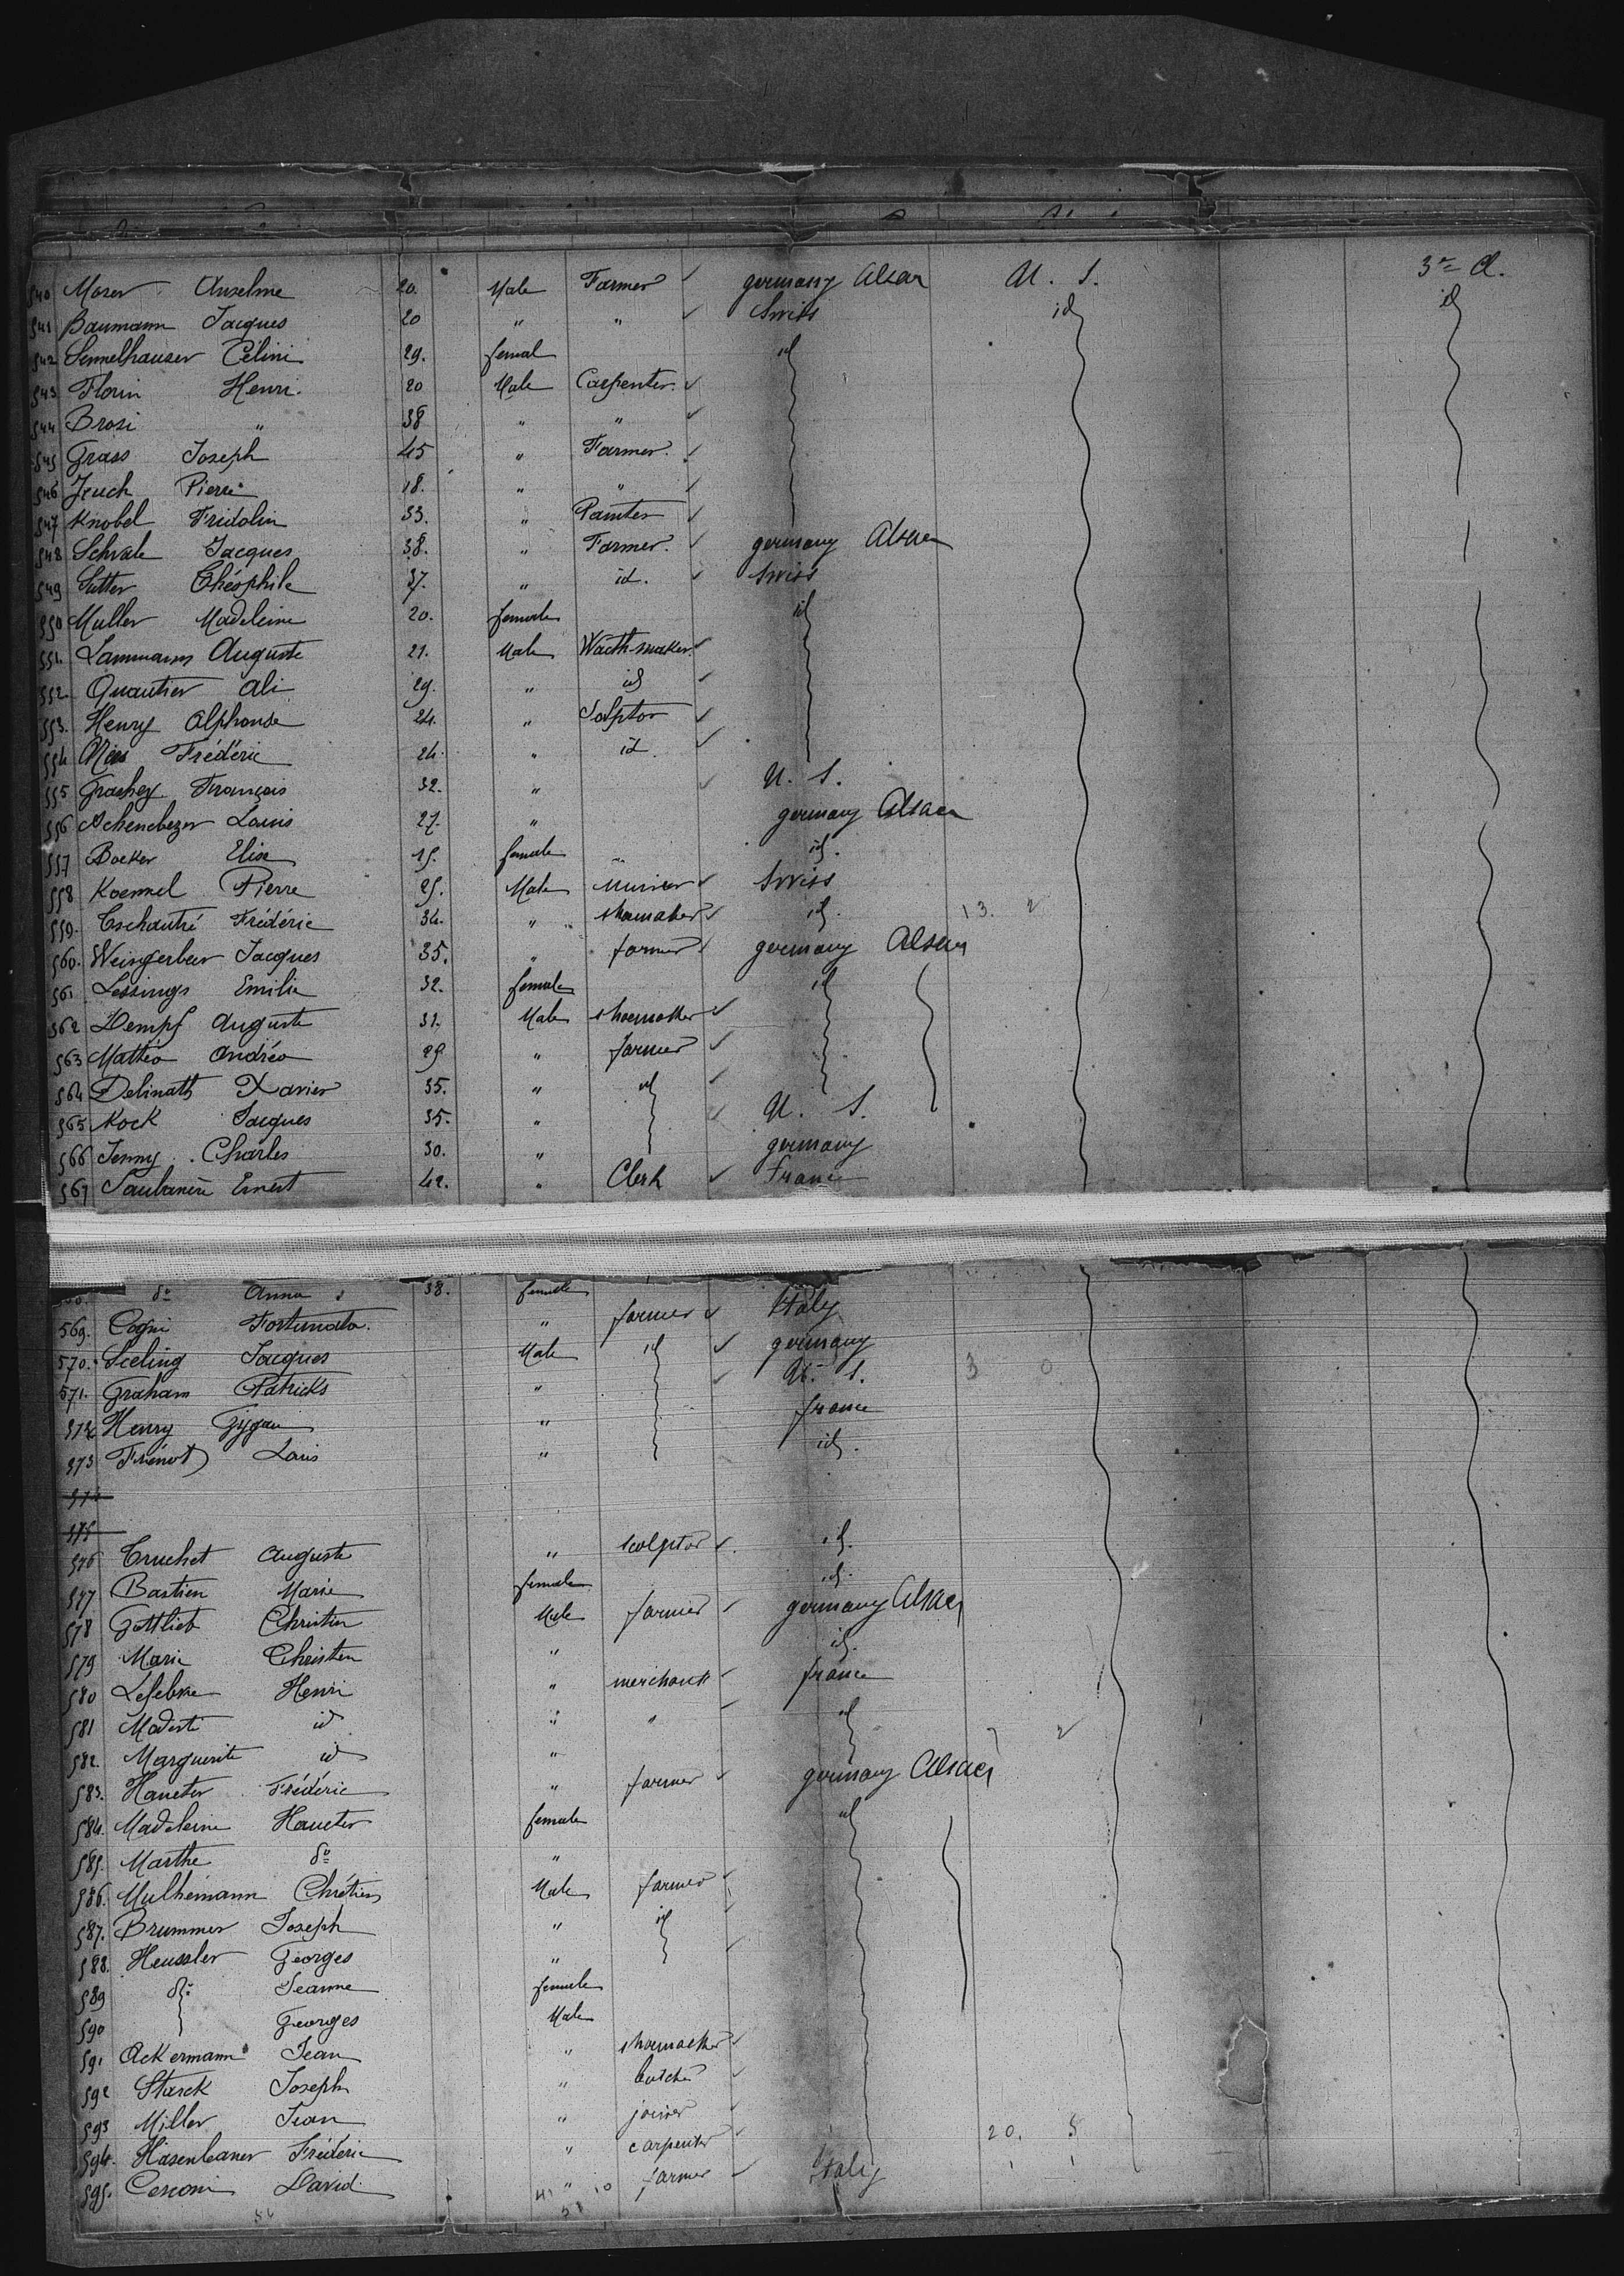 540 Moser Anselme 20. Male Farmer germany Alsace U. S. 3e Cl.
541 Baumann Jacques 20 " " Swiss id id
542 Semelhauser Célini 29. femal id
543 Florin Henri. 20 Male Carpenter.
544 Brosi " 38 " "
545 Grass Joseph 45 " Farmer.
546 Jeuch Pierre 18. " "
547 Knobel Fridolin 33. " Painter
548 Schvale Jacques 38. " Farmer. germany Alsace
549 Sutter Théophile 37. " id. Swiss
550 Muller Madeleine 20. female id
551. Lammann Auguste 21. Male Wacth-maker
552. Quartier Ali 29. " id
553. Henry Alphonse 24. " Solptor
554 Frédéric 24. " id
555 Grashey François 32. " U. S.
556 Achenebezer Louis 27. " germany Alsace
557 Bocker Elise 19. female " id.
558 Koemmel Pierre 25. Male Swiss
559. Tschantré Frédéric 34. " shoemaker id. 13. 2
560. Weingerber Jacques 35. " farmer germany Alsace
561 Lessings Emilie 32. female id
562 Dempf Auguste 31. Male shoemaker
563 Mattéo Andréa 29 " farmer
564 Delinath Xavier 35. " id
565 Kock Jacques 35. " U. S.
566 Jenny Charles 30. " germany
567 Ernest 42. " Clerk France
do Anna 38. female
569. Cogni Fortunato. " farmer Italy
570. Seeling Jacques Male id germany
571. Graham Patricks " U. S. 3 0
572 Henry Gygax " france
573 Frénot Louis " id.
574
575
576 Truchet Auguste " scolptor id.
577 Bastien Marie female id.
578 Gottlieb Christen Male farmer germany Alsace
579 Marie Christen " id.
580 Lefebvre Henri " merchant france
581 Modeste id " " id
582. Marguerite id " 2
583. Haueter Frédéric " farmer germany Alsace
584. Madeleine Haueter female id
585. Marthe do "
586. Mulhemann Chrétien Male farmer
587. Brummer Joseph " id
588. Heussler Georges "
589 do Jeanne female
590 Georges Male
591 Ackermann Jean " shoemaker
592 Starck Joseph " butcher
593 Miller Jean " joiner
594. Hasenbauer Fréderic " carpenter 20. 5
595. Cesconi David. " farmer Italy